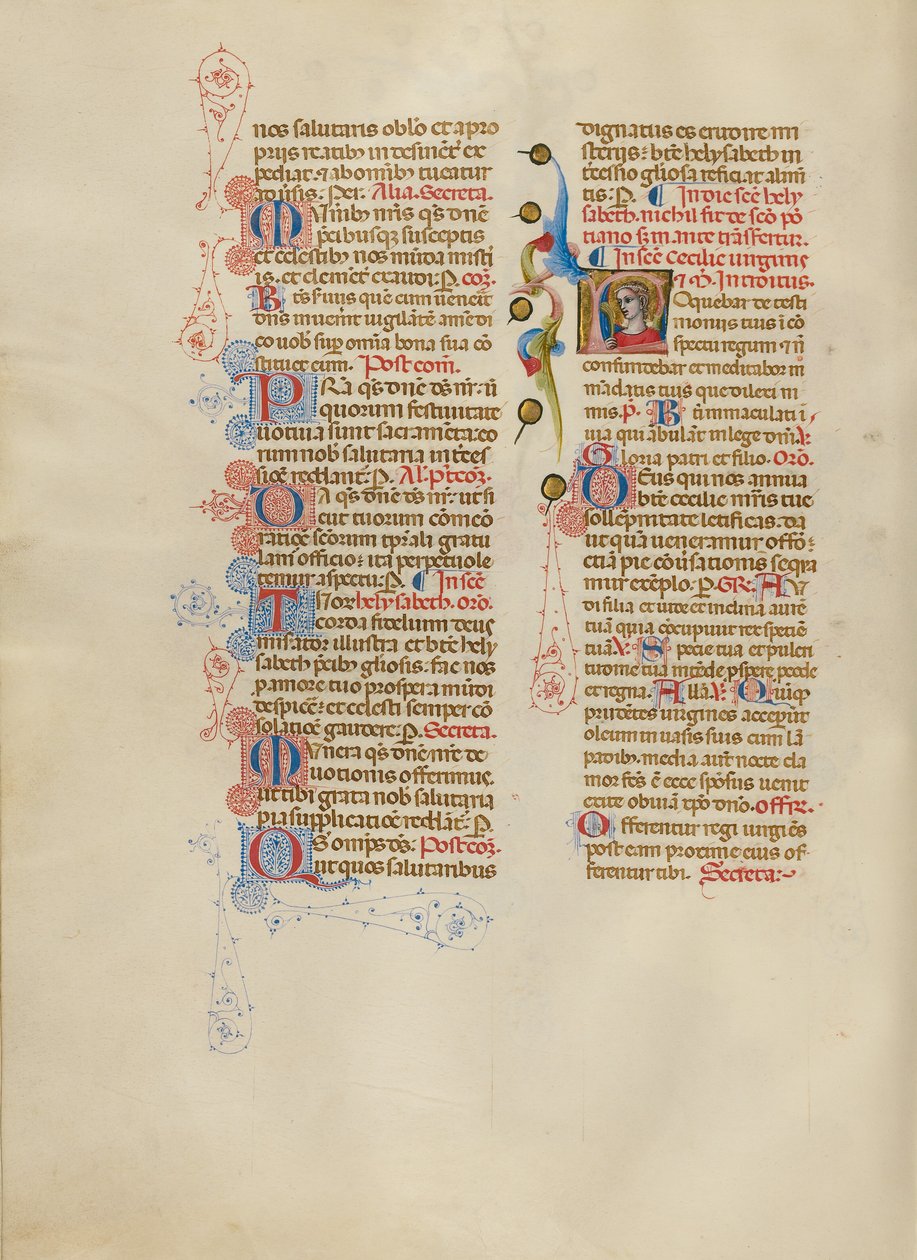 nos salutaris oblō et a pro
priis reatib; indesinēt̄ ex
pediat. ⁊ ab om̄ib; tueatur
aduīsis. Per. Alia. Secreta.
Munib; nr̄is q̄s dn̄e
p̄cibusq; susceptis
et celestib; nos mūda mist̄i
is. et clement̄ exaudi. P. coꝫ.
Bt̄s s̄uus quē cum uen̄eit
dn̄s inuenit uigilātē amē di
co uob̄ sup̄ omīa bona sua cō
stituet eum. Post com̄.
PRa q̄s dn̄e ds̄ nr̄. ut
quorum festiuitate
uotiua sunt sacramēta. eo
rum nob̄ salutaria intēes
siōe reddant̄. P. Al. p̄t coꝫ.
DA q̄s dn̄e ds̄ nr̄. ut si
cut tuorum cōmēo
ratiōe scōrum tp̄rali gratu
lam̄ officio. ita perpetuo le
temur aspectu. P. ¶ In scē
Tuor helysabeth. Orō.
corda fidelium deus
misator illustra et btē hely
sabeth p̄cib; gliosis. fac nos
p̄amore tuo prospera mūdi
despice. et celesti semper cō
solatiōe gaudere. P. Secreta.
Munera q̄s dn̄e nr̄e de
uotionis offerimus.
ut tibi grata nob̄ salutaria
pia supplicatiōe reddāt̄. P.
QS omp̄s ds̄. Post coꝫ.
ut quos salutaribus
dignatus es erudire mi
steriis. btē helysabeth in
tēessio gliosa reficiat alm̄i
tis. P. ¶ In die scē hely
sabeth. nichil fit de scō pō
tiano s; in ante trāsfertur.
¶ In scē Cecilie uirginis
⁊ M. Introitus.
Loquebar de testi
moniis tuis ī cō
spectu regum ⁊ n̄
confundebar et meditabor in
mādatis tuis que dilexi ni
mis. p̄. Bt̄i immaculati ī
uia qui ābulāt in lege dn̄i. ℣.
Gloria patri et filio. Orō.
DEus qui nos annua
btē cecilie mr̄is tue
sollēpnitate letificas. da
ut quā ueneramur offō.
etiā pie cōūsationis seqra
mur exēplo. P. GR. Au
di filia et uide et inclina aurē
tuā quia cōcupiuit rex speciē
tuā. ℣. Specie tua et pulcri
tudine tua intēde p̄spere p̄cede
et regna. Allā. ℣. Quiq;
prudētes uirgines accep̄ūt
oleum in uasis suis cum lā
padib;. media aut̄ nocte cla
mor fc̄s ē ecce spōsus uenit
exite obuiā xp̄o dn̄o. Offr̄.
Offerentur regi uirgīēs
post eam proxime eius of
ferentur tibi. Secreta.